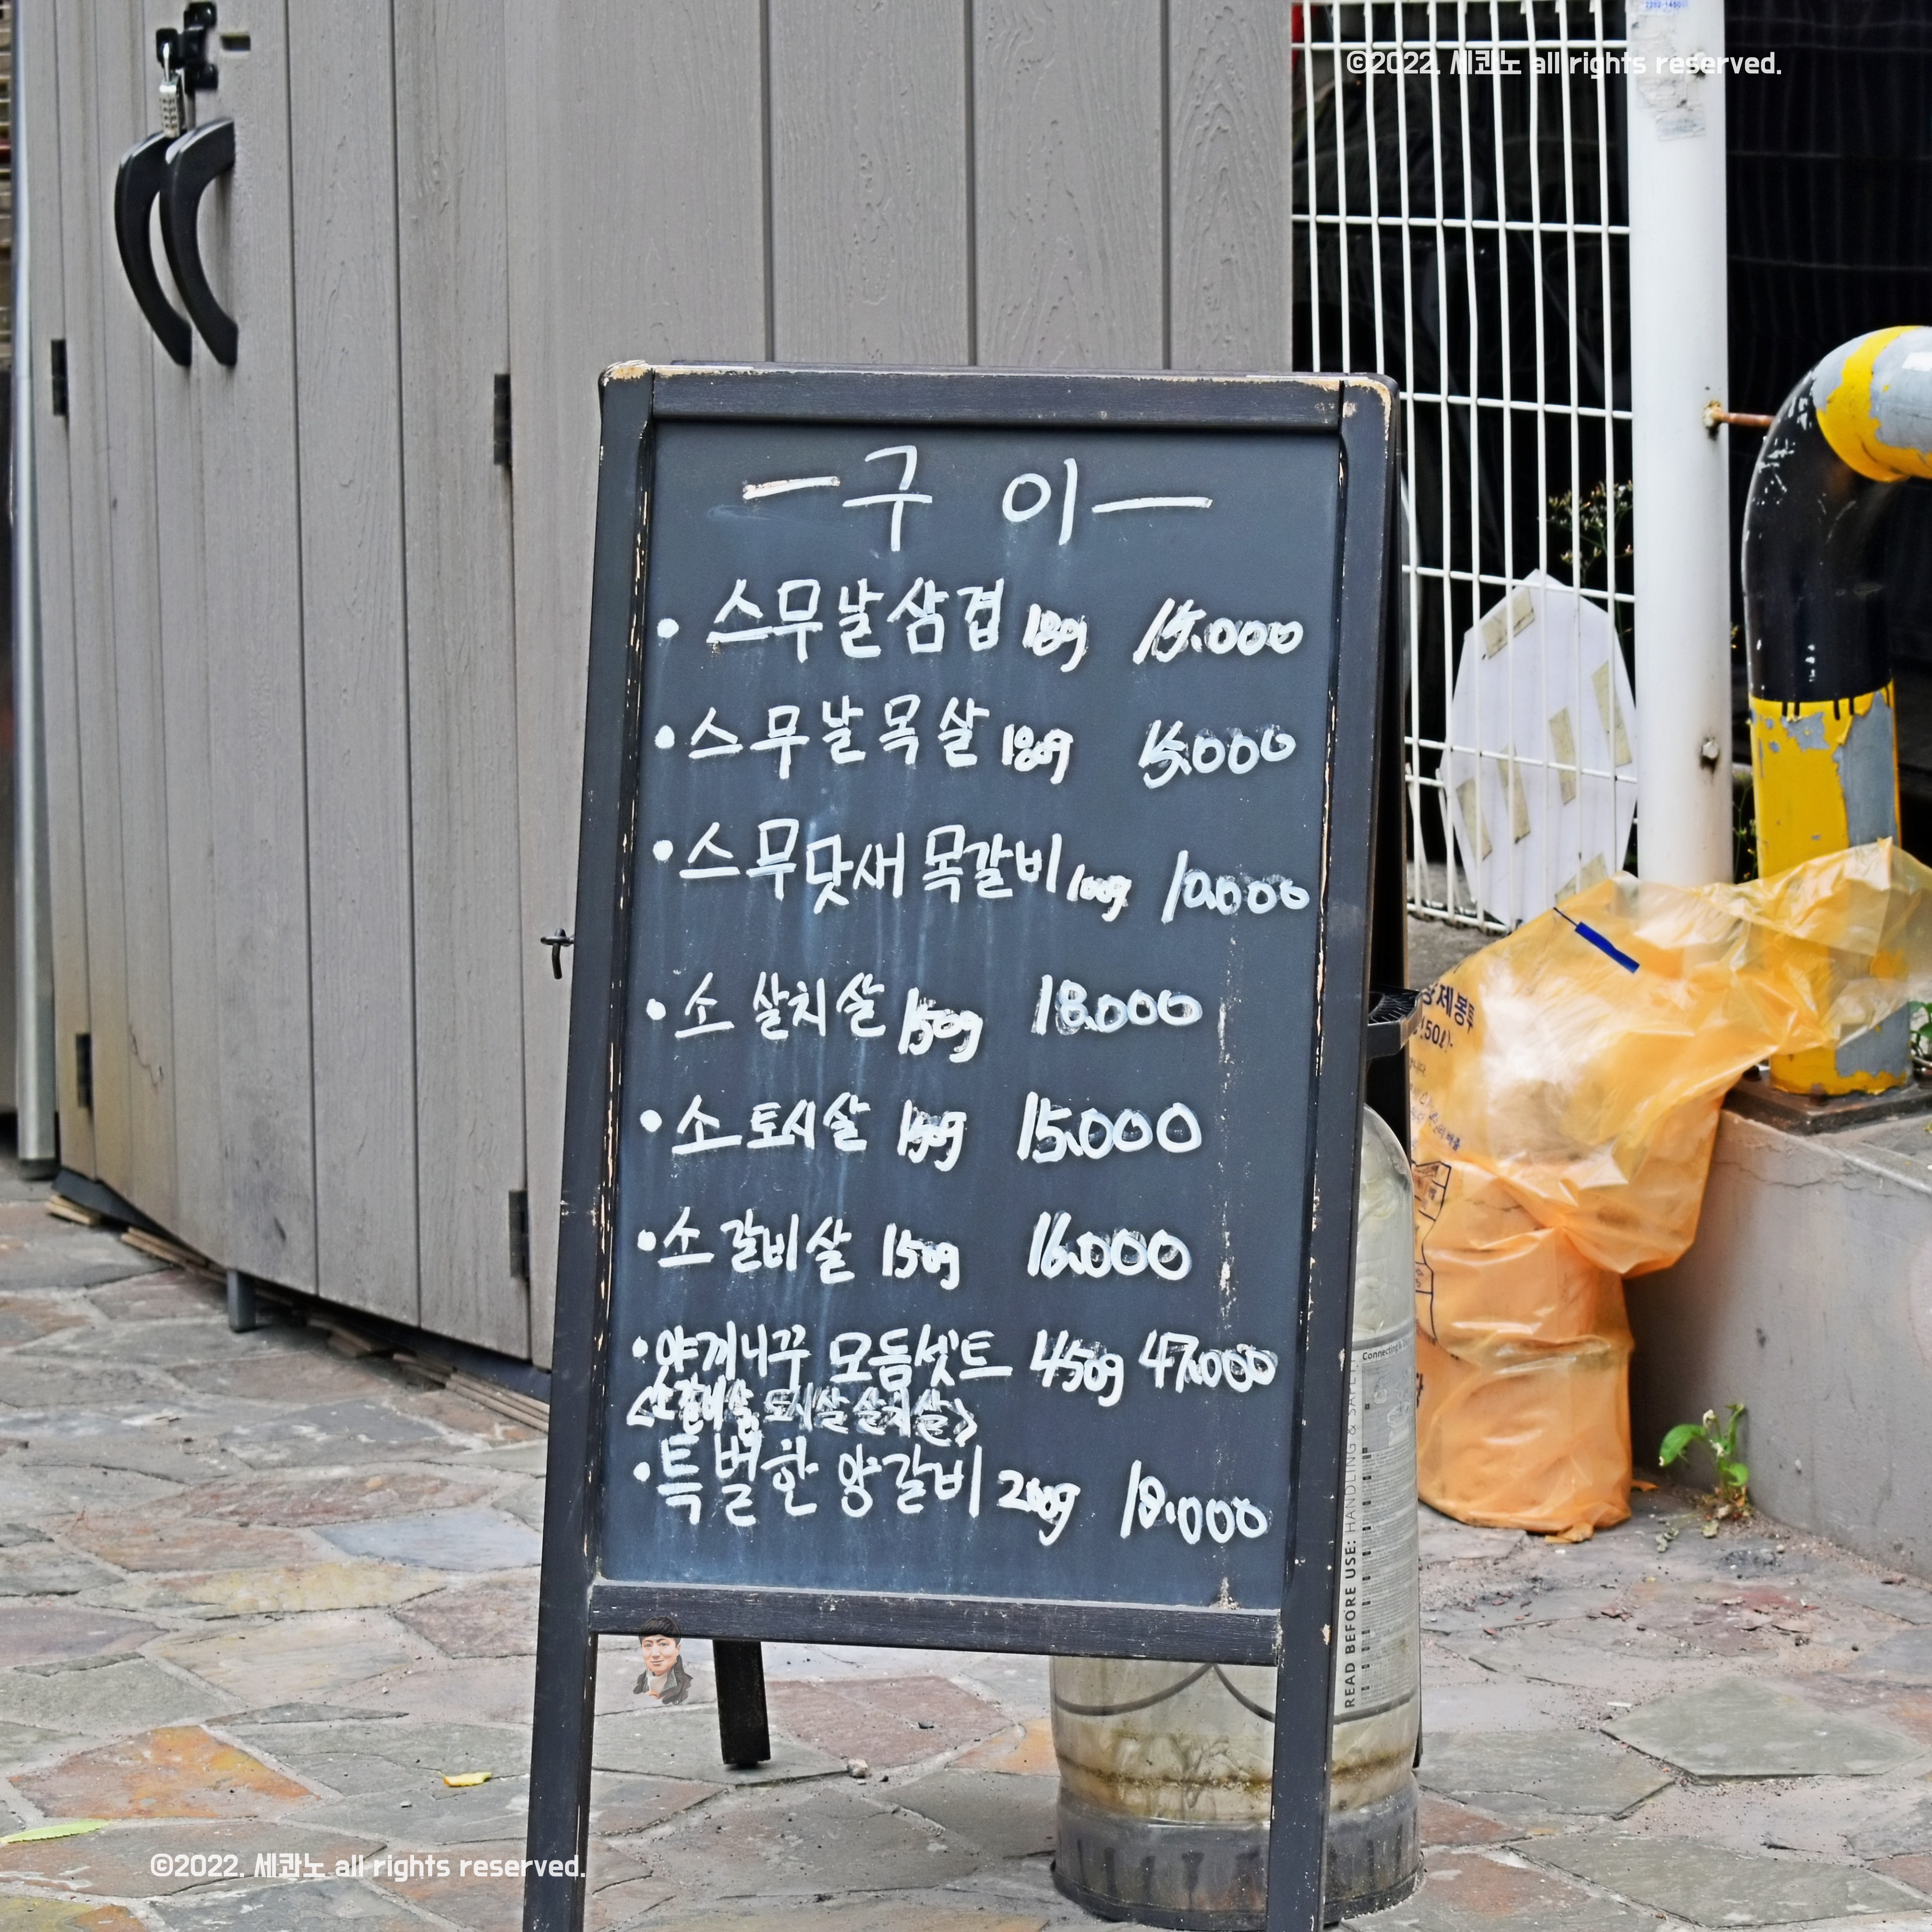 ©2022. 세콴노 all rights reserved.
ー구 이ー
• 스무날삼겹 180g 15.000
• 스무날목살 180g 15.000
• 스무맛새 목갈비 100g 10.000
• 소 살치살 150g 18.000
• 소 토시살 150g 15.000
• 소 갈비살 150g 16.000
• 야끼니꾸 모듬셋트 450g 47.000
<소갈비살 토시살 살치살>
• 특별한 양갈비 200g 18.000
Connecting
READ BEFORE USE: HANDLING & SAFETY
©2022. 세콴노 all rights reserved.